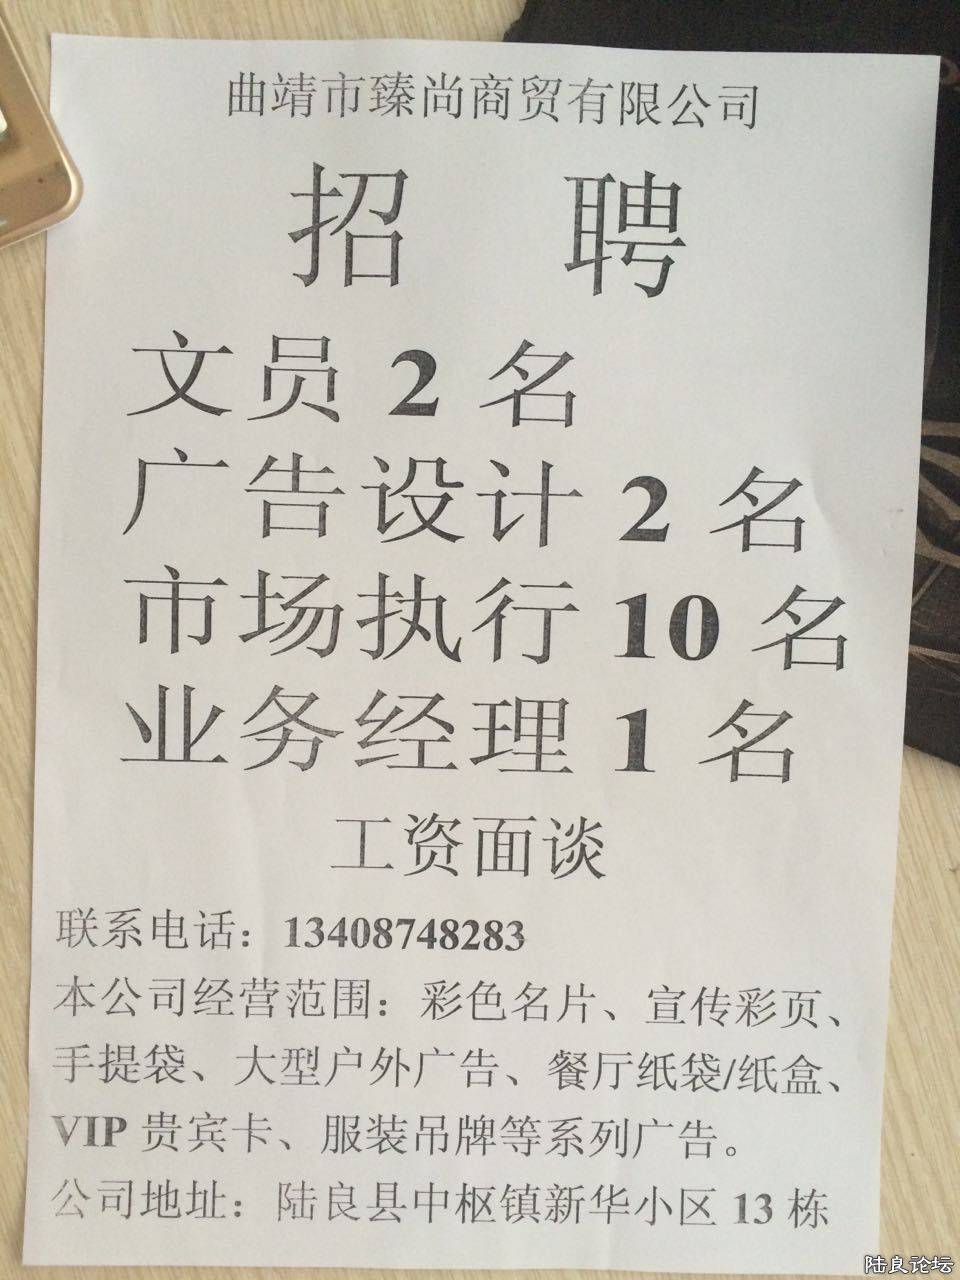 曲靖市臻尚商贸有限公司
招 聘
文员 2 名
广告设计 2 名
市场执行 10 名
业务经理 1 名
工资面谈
联系电话：13408748283
本公司经营范围：彩色名片、宣传彩页、
手提袋、大型户外广告、餐厅纸袋/纸盒、
VIP 贵宾卡、服装吊牌等系列广告。
公司地址：陆良县中枢镇新华小区 13 栋
陆良论坛